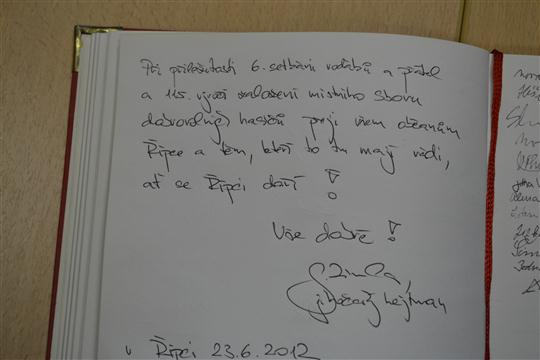 Při příležitosti 6. setkání rodáků a přátel
a 115. výročí založení místního sboru
dobrovolných hasičů přeji všem občanům
Řípce a těm, kteří to tu mají rádi,
ať se Řípci daří!
Vše dobré!
hejtman
v Řípci 23.6.2012